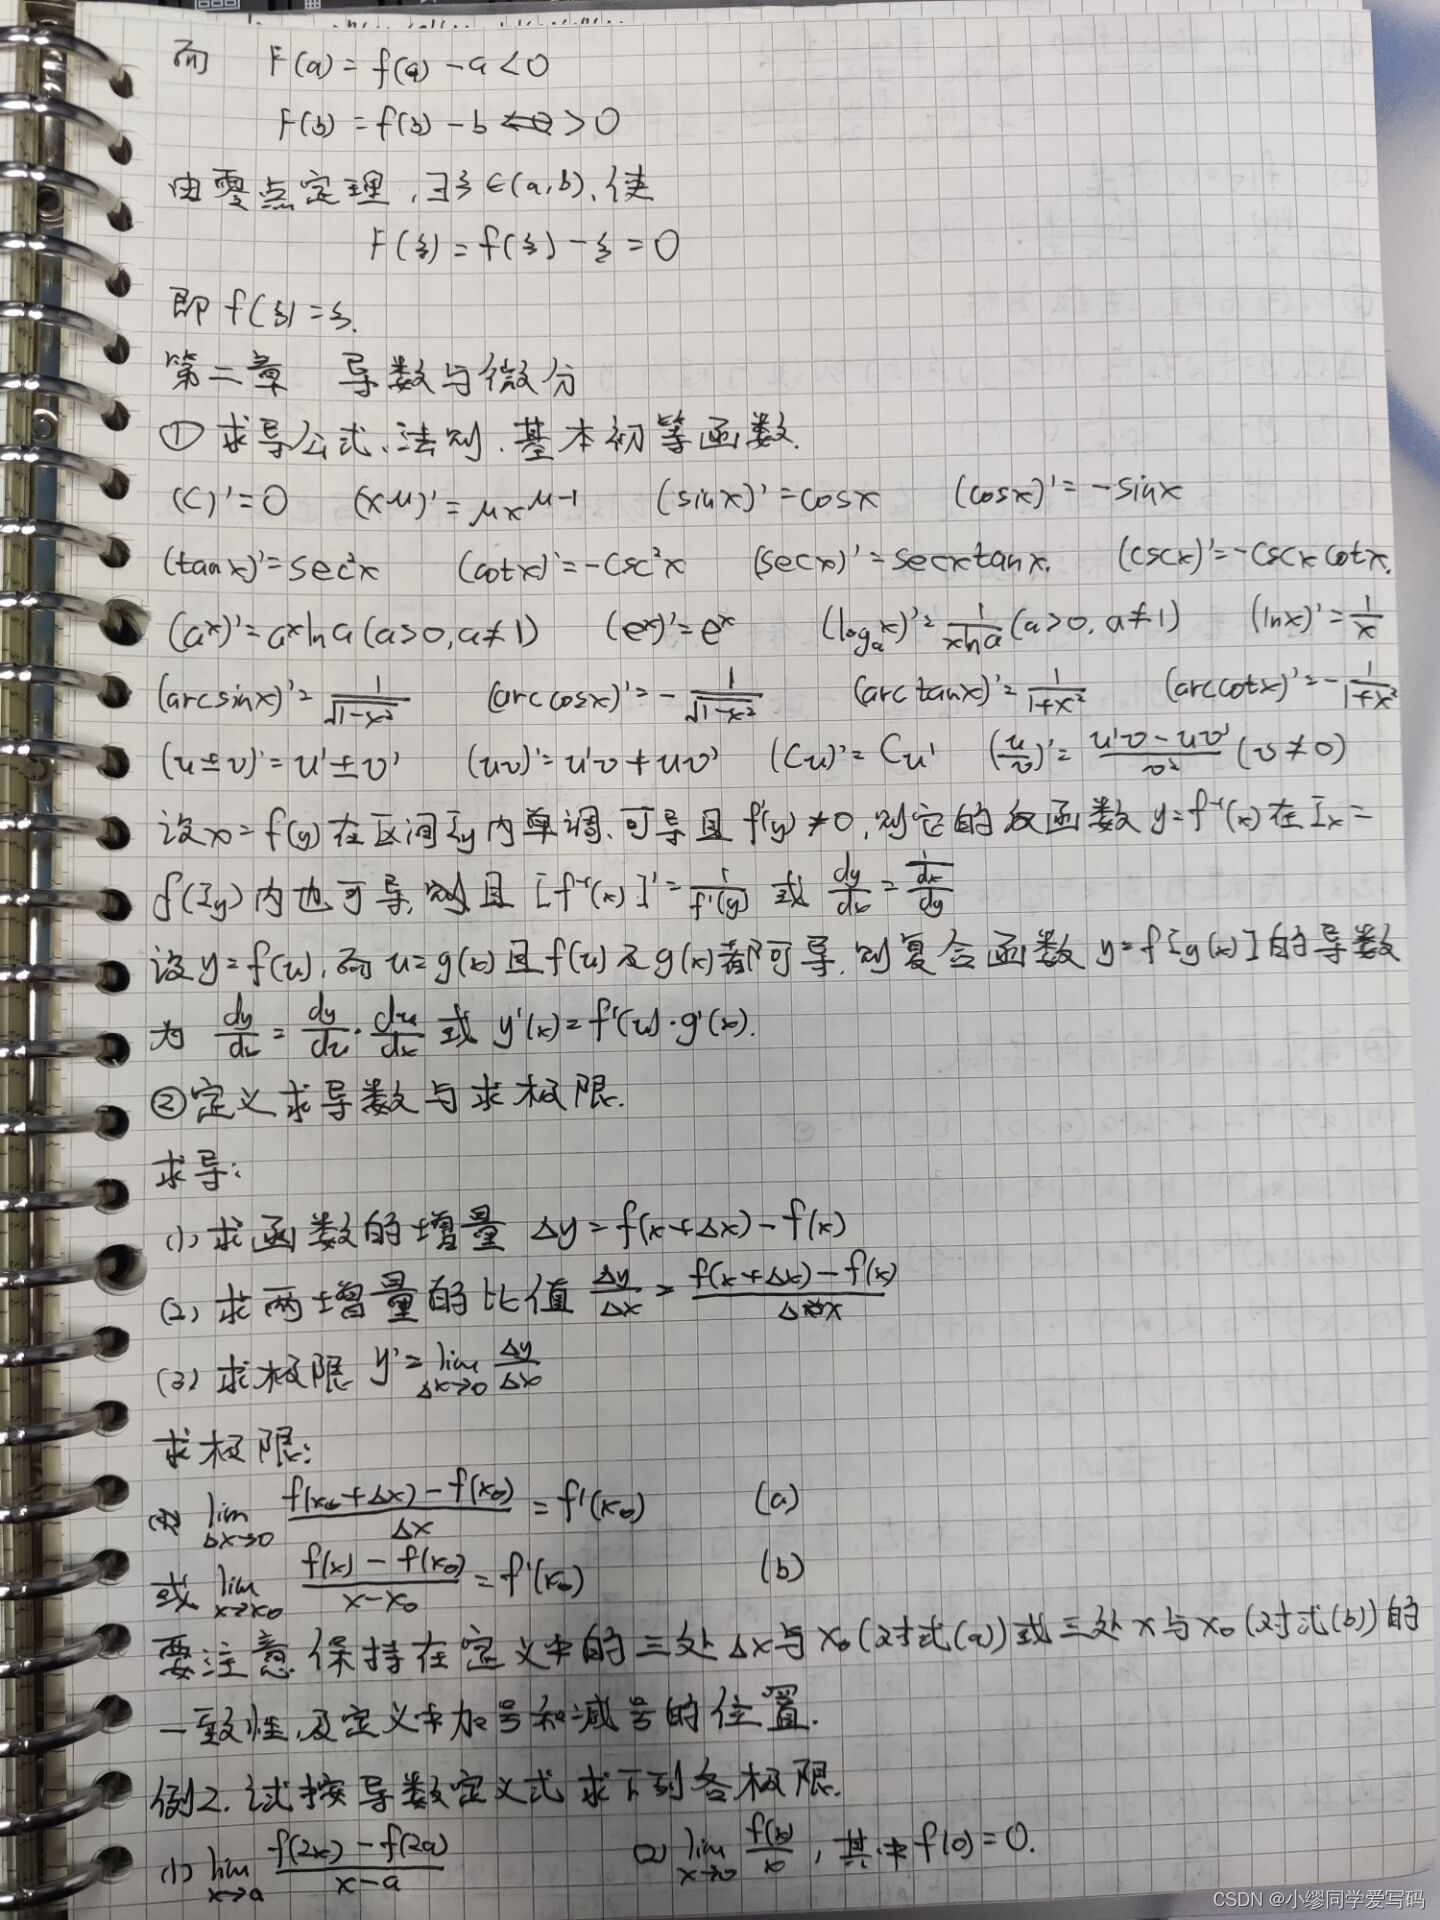 而 F(a) = f(a) - a < 0
F(b) = f(b) - b > 0
由零点定理,∃ξ∈(a,b),使
F(ξ) = f(ξ) - ξ = 0
即 f(ξ) = ξ.
第二章 导数与微分
① 求导公式、法则、基本初等函数.
(C)' = 0 (x^μ)' = μx^(μ-1) (sinx)' = cosx (cosx)' = -sinx
(tanx)' = sec²x (cotx)' = -csc²x (secx)' = secxtanx. (cscx)' = -cscxcotx.
(a^x)' = a^x lna (a>0, a≠1) (e^x)' = e^x (log_a x)' = 1/(xlna) (a>0, a≠1) (lnx)' = 1/x
(arcsinx)' = 1/√(1-x²) (arccosx)' = -1/√(1-x²) (arctanx)' = 1/(1+x²) (arccotx)' = -1/(1+x²)
(u±v)' = u'±v' (uv)' = u'v+uv' (Cu)' = Cu' (u/v)' = (u'v-uv')/v² (v≠0)
设x=f(y)在区间I_y内单调、可导且f'(y)≠0,则它的反函数y=f⁻¹(x)在I_x=
f(I_y)内也可导,则且[f⁻¹(x)]' = 1/f'(y) 或 dy/dx = 1/(dx/dy)
设y=f(u),而u=g(x)且f(u)及g(x)都可导,则复合函数y=f[g(x)]的导数
为 dy/dx = dy/du · du/dx 或 y'(x) = f'(u)·g'(x).
② 定义求导数与求极限.
求导:
(1) 求函数的增量 Δy = f(x+Δx) - f(x)
(2) 求两增量的比值 Δy/Δx = (f(x+Δx) - f(x))/Δx
(3) 求极限 y' = lim_(Δx→0) Δy/Δx
求极限:
lim_(Δx→0) (f(x₀+Δx) - f(x₀))/Δx = f'(x₀) (a)
或 lim_(x→x₀) (f(x) - f(x₀))/(x-x₀) = f'(x₀) (b)
要注意保持在定义中的三处Δx与x₀(对式(a))或三处x与x₀(对式(b))的
一致性,及定义中加号和减号的位置.
例2.试按导数定义式求下列各极限.
(1) lim_(x→a) (f(2x) - f(2a))/(x-a) (2) lim_(x→0) f(x)/x,其中f(0)=0.
CSDN @小缪同学爱写码